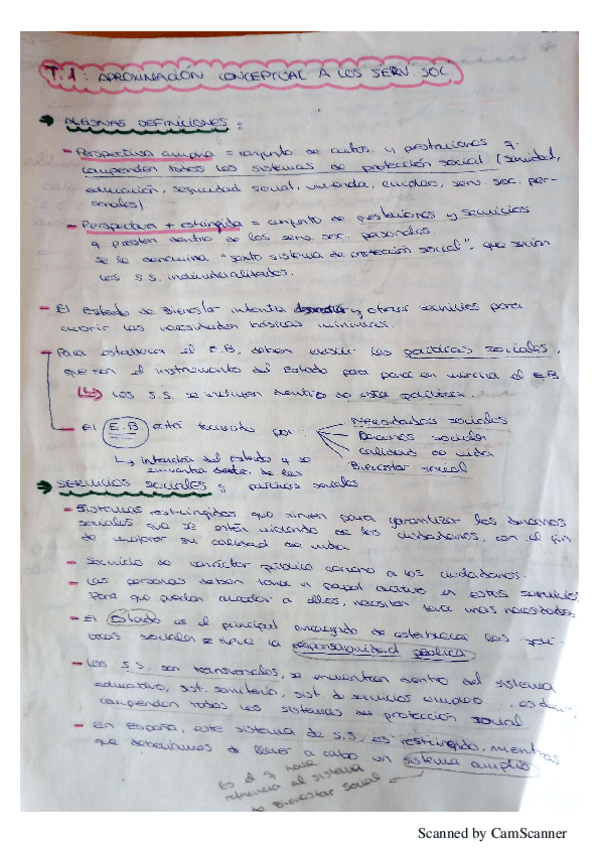 T.1: APROXIMACIÓN CONCEPTUAL A LOS SERV. SOC.
ALGUNAS DEFINICIONES:
- Perspectiva amplia = conjunto de y prestaciones q
comprenden todos los sistemas de protección social (sanidad,
educación, seguridad social, vivienda, empleo, serv. soc. per-
sonales)
- Perspectiva + estringida = conjunto de prestaciones y servicios
q presten dentro de los serv. soc. personales.
Se le denomina "sexto sistema de protección social", que serían
los S.S. individualizados.
- El Estado de Bienestar intenta y otros servicios para
cubrir las necesidades básicas mínimas.
- Para establecer el E.B, deben existir las políticas sociales,
que son el instrumento del Estado para poner en marcha el E.B.
Los S.S. se incluyen dentro de esta política.
- El E.B está formado por: Necesidades sociales
Derechos sociales
calidad de vida
Bienestar social
intención del Estado y se
encuentra dentro de las
políticas sociales
SERVICIOS SOCIALES:
- Sistemas restringidos que sirven para garantizar los derechos
sociales que se están violando de los ciudadanos, con el fin
de mejorar su calidad de vida.
- Servicio de carácter público cercano a los ciudadanos.
- Las personas deben tener un papel activo en estos servicios.
Para que puedan acceder a ellos, necesitan tener unas necesidades
- El Estado es el principal encargado de establecer las polí-
ticas sociales e tiene la responsabilidad pública
- Los S.S. son transversales, se encuentran dentro del sistema
educativo, sist. sanitario, sist. de servicios empleo..., es decir,
comprenden todos los sistemas de protección social
- En España, este sistema de S.S. es restringido, mientras
que deberíamos de llevar a cabo un sistema amplio
Es el q hace
referencia al sistema
de Bienestar Social
Scanned by CamScanner